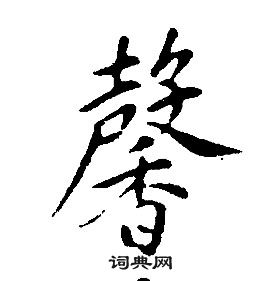 馨
词典网